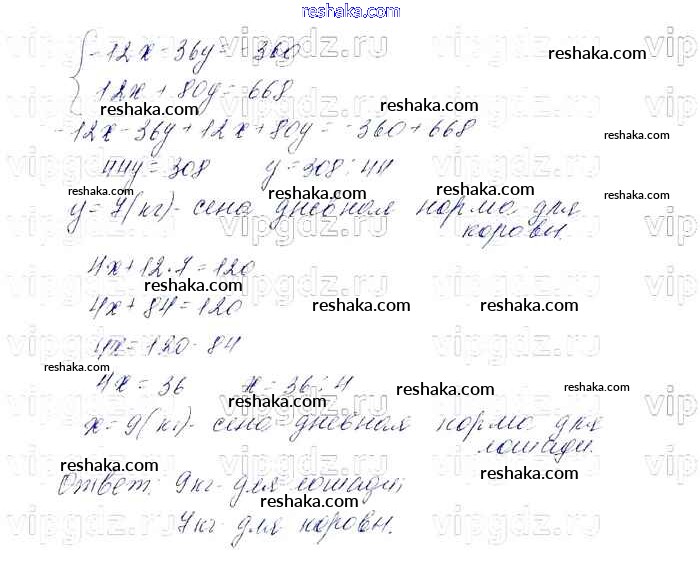 reshaka.com
{ -12x - 36y = -360
reshaka.com
12x + 80y = 668
reshaka.com reshaka.com
-12x - 36y + 12x + 80y = -360 + 668
reshaka.com
44y = 308 y = 308 : 44
reshaka.com reshaka.com reshaka.com
y = 7 (кг) - сена дневная норма для
коровы.
4x + 12·7 = 120
reshaka.com reshaka.com
4x + 84 = 120
reshaka.com reshaka.com
4x = 120 - 84
reshaka.com
4x = 36 x = 36 : 4
reshaka.com reshaka.com
reshaka.com
x = 9 (кг) - сена дневная норма для
лошади.
reshaka.com reshaka.com
Ответ: 9 кг - для лошади;
reshaka.com reshaka.com
7 кг - для коровы.
vipgdz.ru